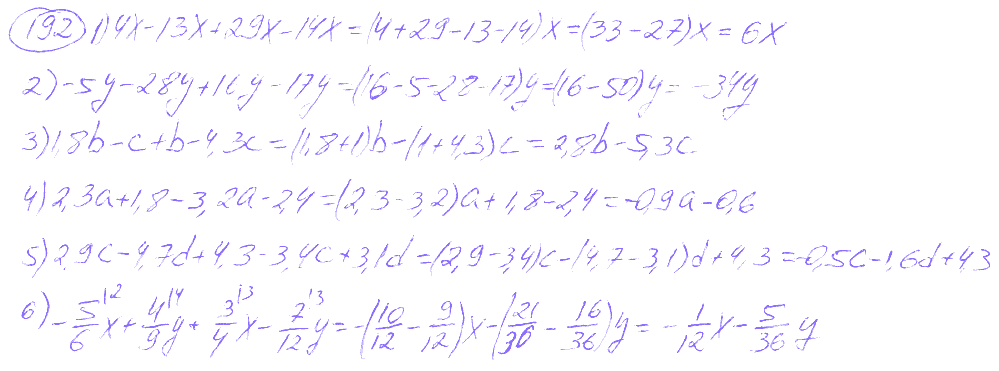 192 1) 4x-13x+29x-14x=(4+29-13-14)x=(33-27)x=6x
2) -5y-28y+16y-17y=(16-5-28-17)y=(16-50)y=-34y
3) 1,8b-c+b-4,3c=(1,8+1)b-(1+4,3)c=2,8b-5,3c
4) 2,3a+1,8-3,2a-2,4=(2,3-3,2)a+1,8-2,4=-0,9a-0,6
5) 2,9c-4,7d+4,3-3,4c+3,1d=(2,9-3,4)c-(4,7-3,1)d+4,3=-0,5c-1,6d+4,3
6) -5/6|2 x+4/9|4 y+3/4|3 x-7/12|3 y=-(10/12-9/12)x-(21/36-16/36)y=-1/12 x-5/36 y